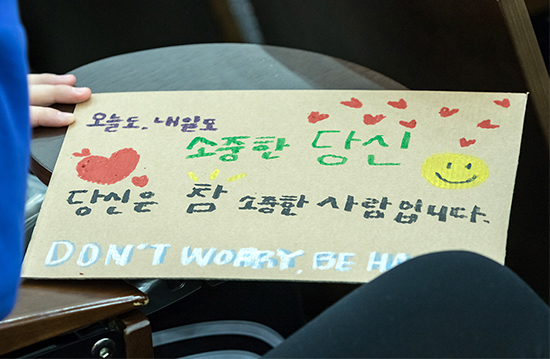 오늘도, 내일도
소중한 당신
당신은 참 소중한 사람입니다.
DON'T WORRY, BE HA